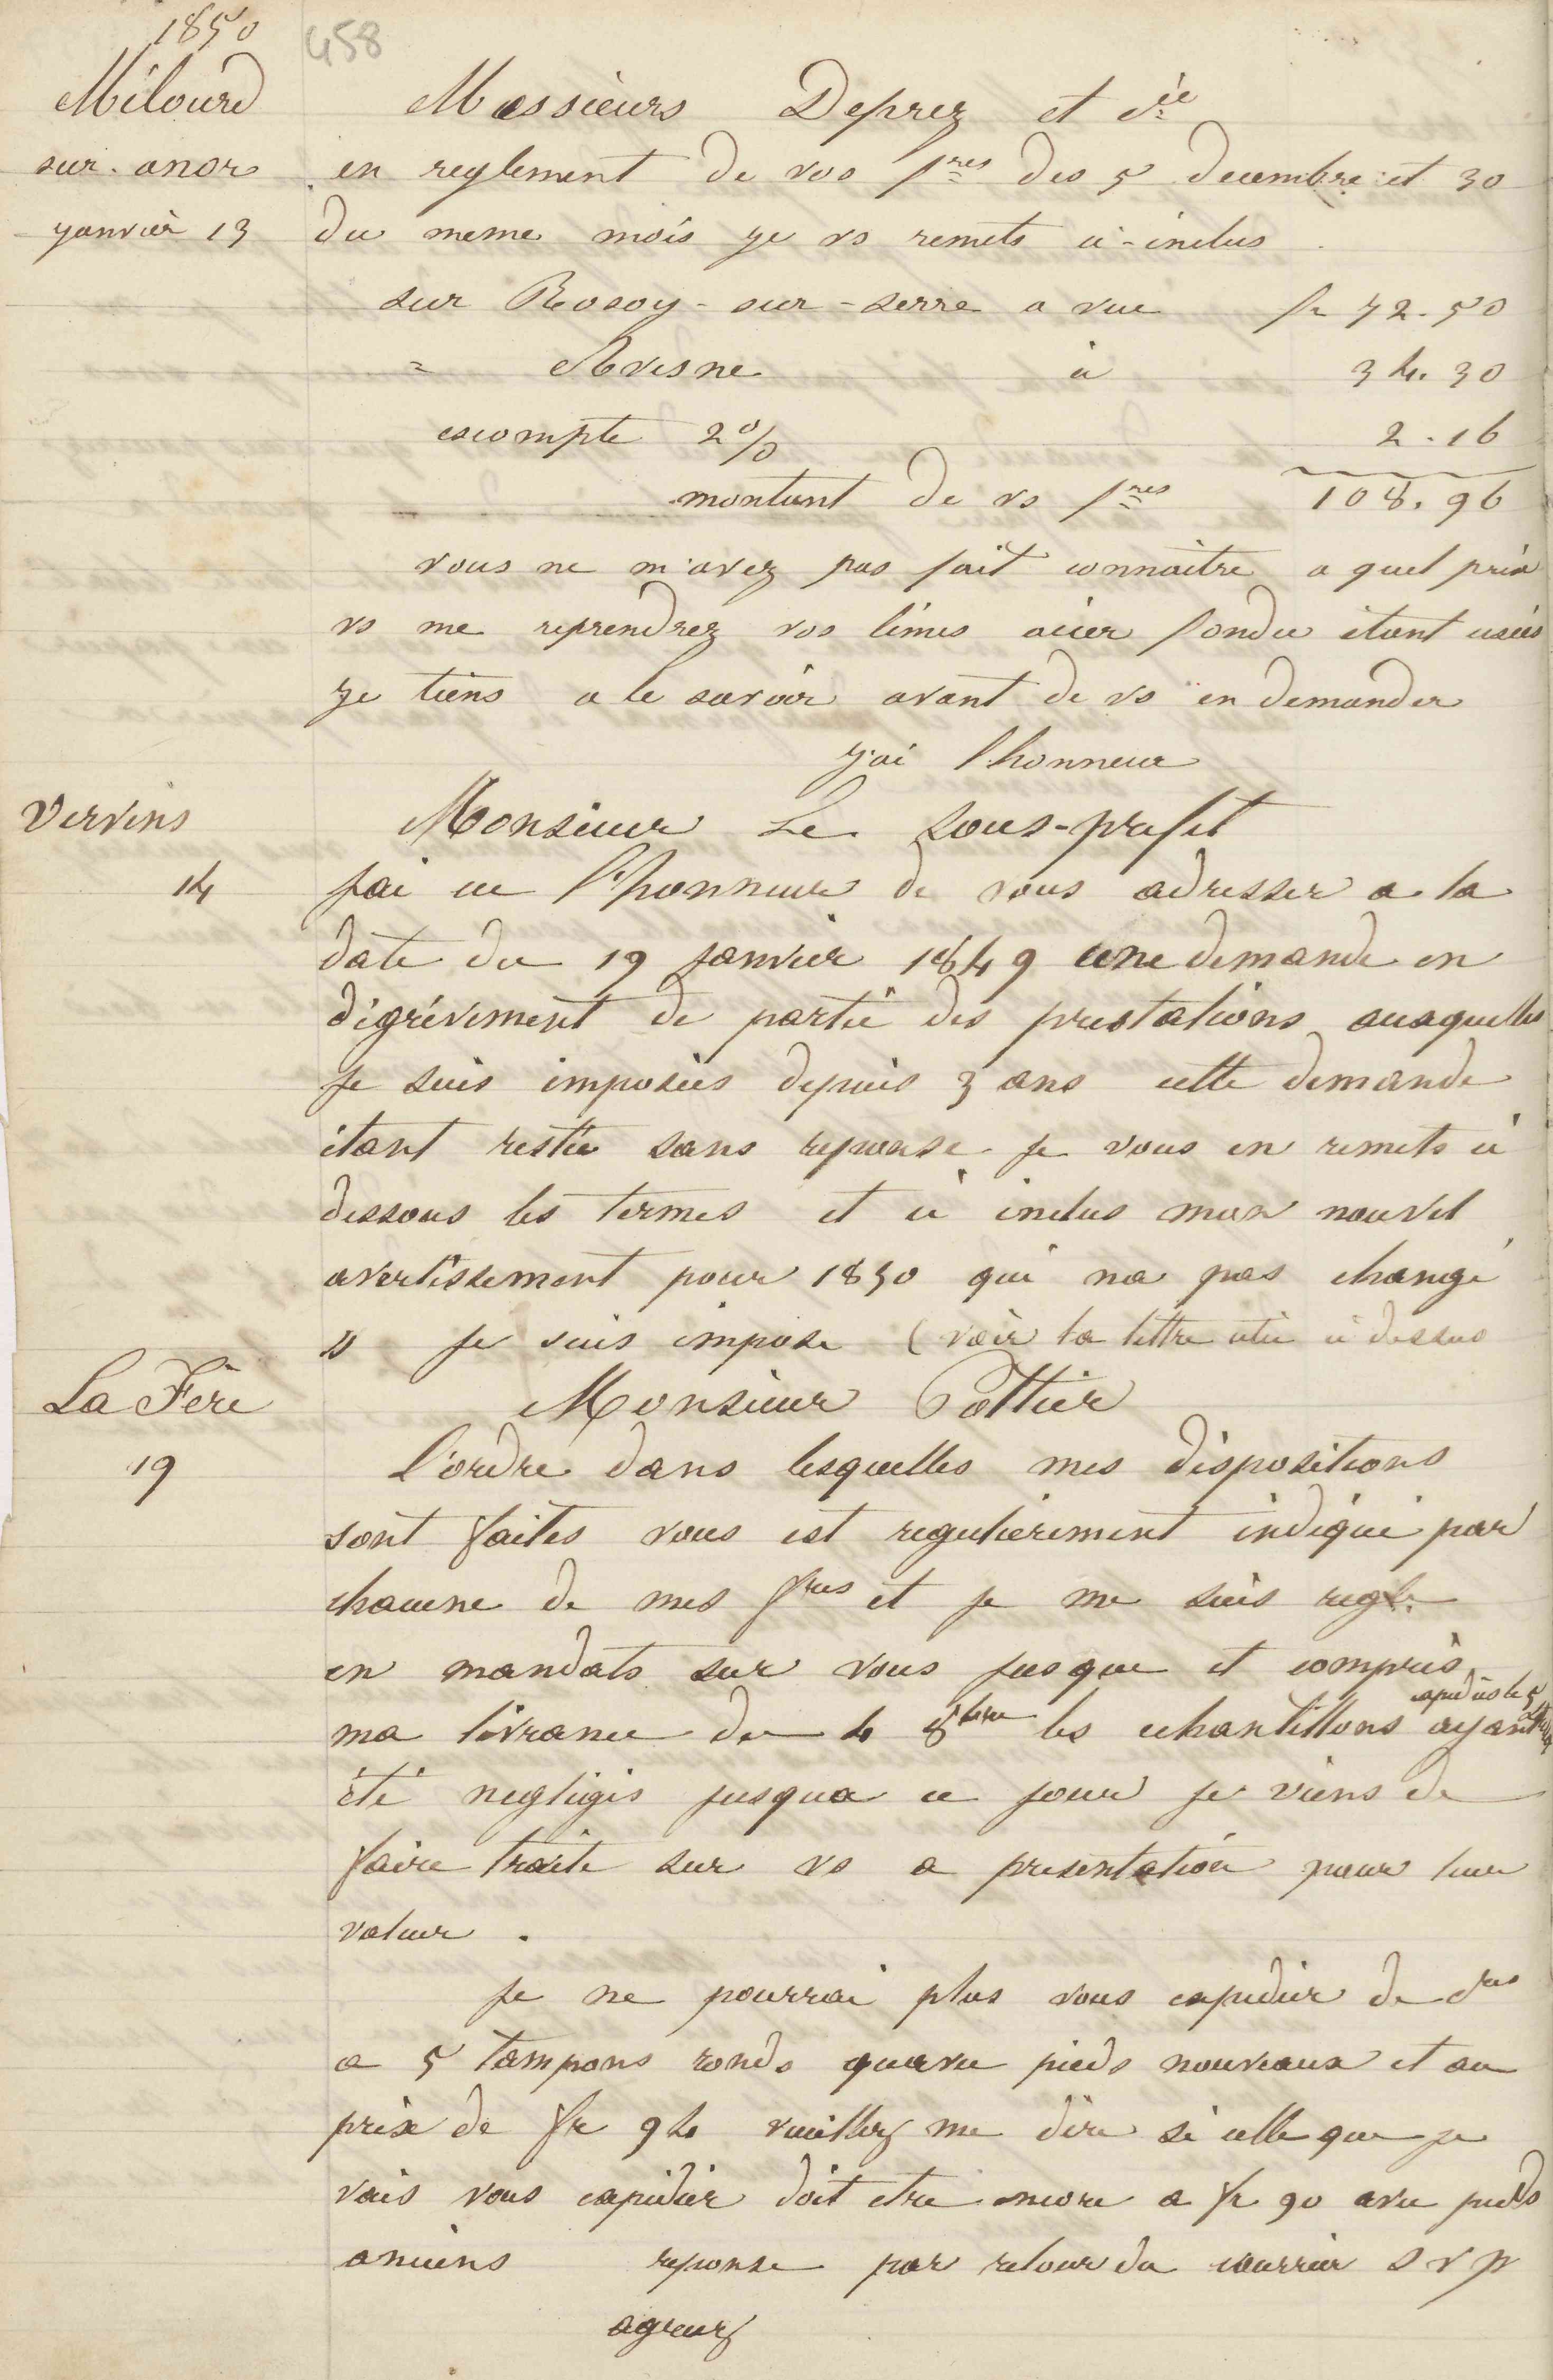 1850
458
Milourd
sur. anor
janvier 13
Messieurs Deprez et Cie
en reglement de vos fres des 5 decembre et 30
du meme mois je vs remets ci-inclus
sur Rosoy-sur-serre a vue fr 72.50
= Avesne à 34.30
escompte 2% 2.16
montant de vs fres 108.96
vous ne m'avez pas fait connaitre a quel prix
vs me reprendrez vos limes acier fondu étant usées
je tiens a le savoir avant de vs en demander
j'ai l'honneur
Vervins
14
Monsieur Le Sous-prefet
J'ai eu l'honneur de vous adresser a la
date du 19 janvier 1849 une demande en
dégrévement de partie des prestations auxquelles
je suis imposées depuis 3 ans cette demande
étant restée sans reponse je vous en remets ci
dessous les termes et ci inclus mon nouvel
avertissement pour 1850 qui na pas changé
" je suis impose (voir la lettre citée ci dessus
La Fère
19
Monsieur Pottier
l'ordre dans lesquelles mes dispositions
sont faites vous est regulièrement indiqué par
chacune de mes fres et je me suis regle
en mandats sur vous jusque et compris
expediés le 5
ma livrance du 4 8bre les echantillons ayant
été negligés jusqua ce jour je viens de
faire traite sur vs a presentation pour leur
valeur .
je ne pourrai plus vous expedier de dres
a 5 tampons ronds quavec pieds nouveaux et au
prix de fr 94 veuillez me dire si celle que je
vais vous expédier doit etre encore a fr 90 avec pieds
anciens reponse par retour du courrier s v p
agreez